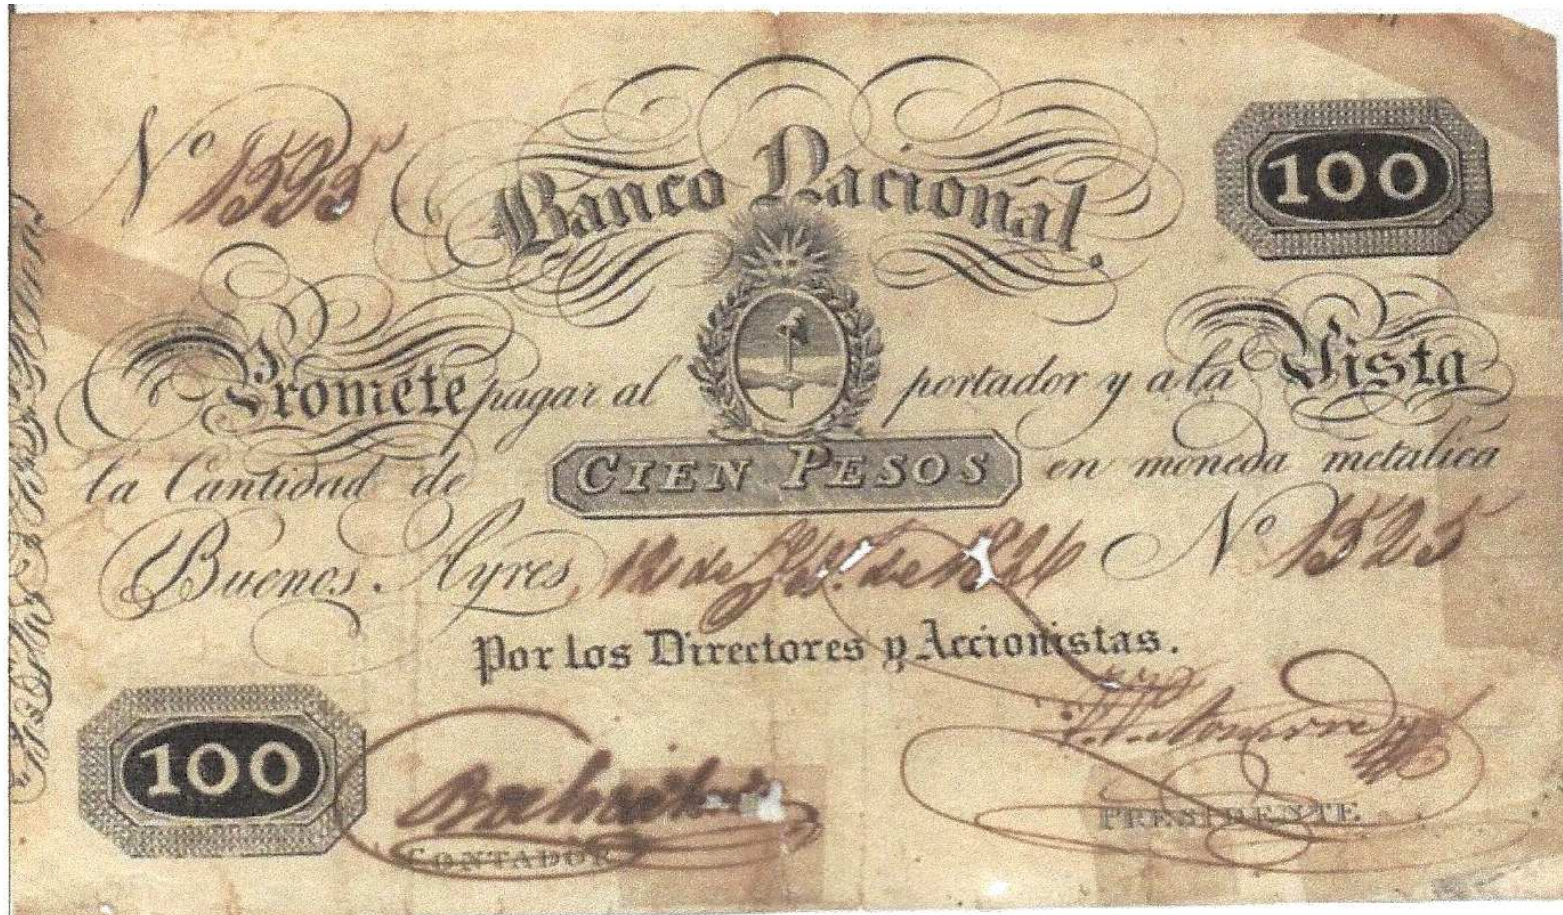 Nº 1525
Banco Nacional.
100
Promete pagar al portador y a la Vista
la Cantidad de CIEN PESOS en moneda metalica
Buenos Ayres, 12 de de 1826 Nº 1525
Por los Directores y Accionistas.
100
CONTADOR
PRESIDENTE